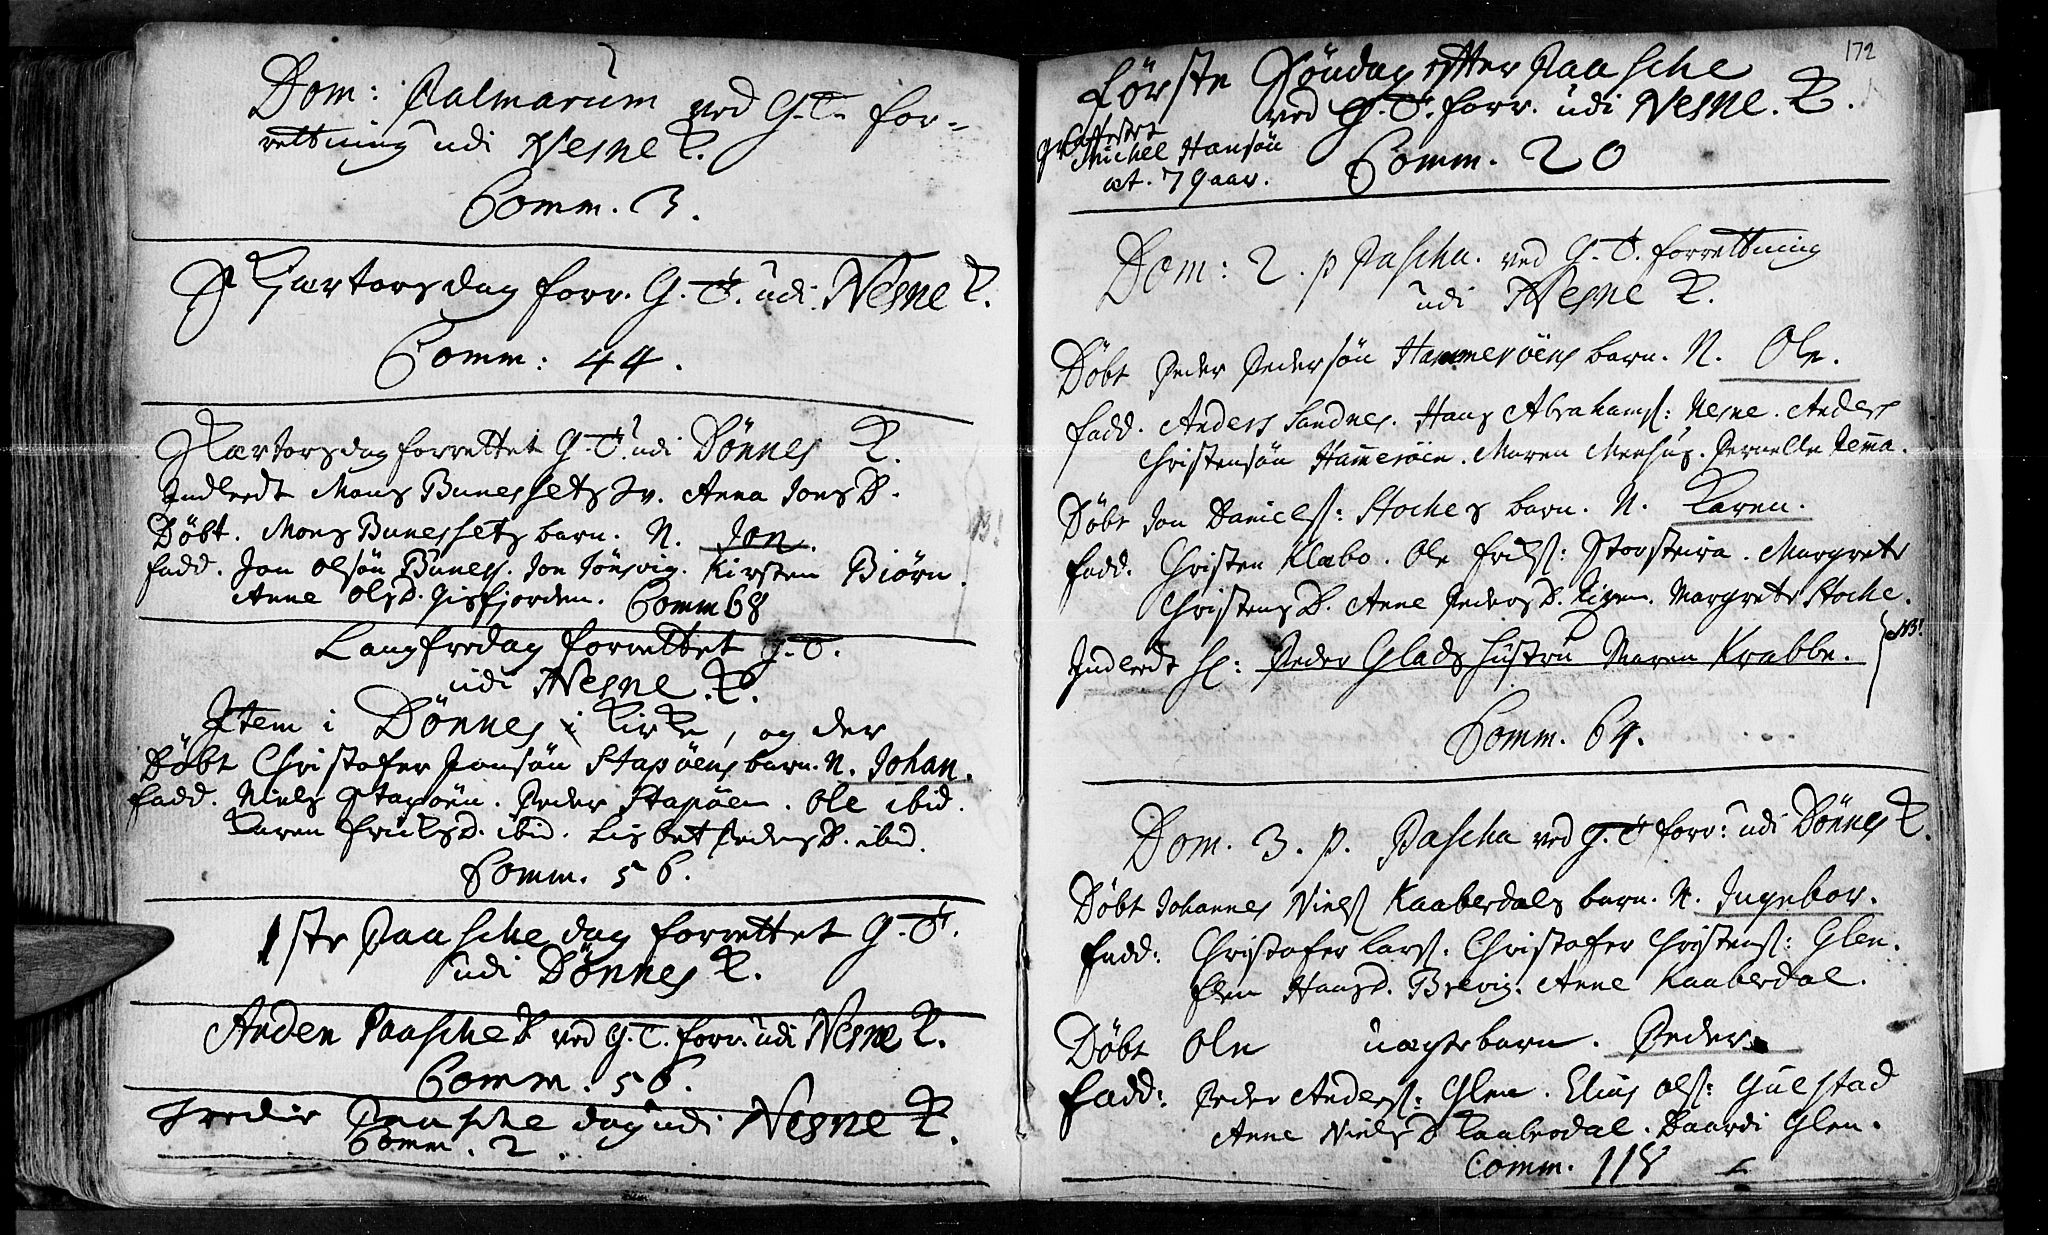 Dom: Palmarum ved G.T. for-
rettning udi Nesne K.
Comm. 3.
Skjærtorsdag forr. G.T. udi Nesne K.
Comm: 44.
Skærtorsdag forrettet G.T. udi Dönnes K.
Indleedt Mons Bunessets Anna JonsD.
Döbt. Mons Bunessets barn. N. Jon.
fadd. Jon Olsön Buness. Jon Kirsten Biørn.
Anne OlsD. Comm 68
Langfredag forrettet G.T.
udi Nesne K.
Item i Dönnes Kirke, og der
Döbt Christofer Jonsön Stapöens barn. N. Johan.
fadd. Niels Stapöen. Peder Stapöen. Ole ibid.
Karen ibid. Lisbet PedersD. ibid.
Comm. 56.
1ste Paasche dag forrettet G.T.
udi Dönnes K.
Anden Paasche D ved G.T. forr. udi Nesne K.
Comm. 56.
Tredie Paasche dag udi Nesne K.
Comm. 2.
172
Förste Söndag efter Paasche
ved G.T. forr. udi Nesne. K.
Michel Hansön
æt. 79 aar.
Comm. 20
Dom: 2. p Pascha. ved G.T. forrettning
udi Nesne K.
Döbt Peder Pedersön Hammeröens barn. N. Ole.
fadd. Anders Sandnes. Hans Abrahams: Nesne. Anders
Christensön Ham̄eröen. Maren Meehus. Pernelle
Döbt Jon Daniels: Stoches barn. N. Karen.
fadd. Christen Klæbo. Ole Storsteira. Margrete
ChristensD. Anne PedersD. Margrete Stoche.
Indleedt Hr: Peder Glads Hustru Maren Krabbe. NB!
Comm. 64.
Dom. 3. p. Pascha ved G.T forr: udi Dönnes K.
Döbt Johannes Niels Kaaberdals barn. N. Ingebor.
fadd: Christofer Lars: Christofer Christens: Glen.
Elen HansD. Brevig. Anne Kaaberdal.
Döbt Ole uægte barn. Peder.
fadd: Peder Anders: Glen. Elius Ols: Gulstad
Anne NielsD Kaaberdal. Baardi Glen.
Comm. 118